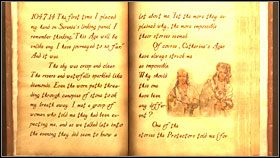 10.17.14 The first time I placed
my hand on Serenia's linking panel, I
remember thinking, This Age will be
unlike any I have journeyed to so far.
And it was.
The sky was crisp and clear.
The rivers and waterfalls sparkled like
diamonds. Even the worn paths threading
through canyons of stone took
my breath away. I met a group of
women who told me they had been expecting
me, and as we talked late into
the evening they did seem to know a
lot about me. Yet the more they explained
why, the more impossible
their stories seemed.
Of course, Catherine's Ages
have always struck me
as impossible.
Why should
this one
have been
any different?
One of the
stories the Protectors told me (for